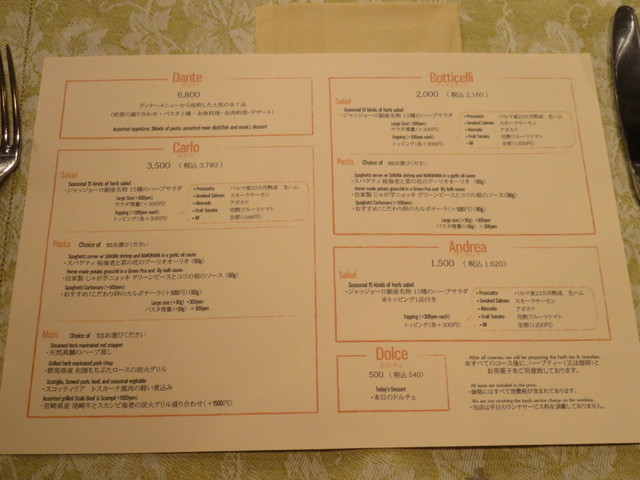 Dante
ダンテ
6,800
ディナーメニューから抜粋した人気の全7品
Assorted appetizer, 3kinds of pasta, assorted main dish(fish and meat), dessert
Carlo
カルロ
3,500 (税込 3,780)
Salad
Seasonal 15 kinds of herb salad
・ジャッジョーロ銀座名物 15種のハーブサラダ
Large Size(+300yen)
サラダ増量(+300円)
Topping (+300yen each)
トッピング(各+300円)
• Prosciutto パルマ産22カ月熟成 生ハム
• Smoked Salmon スモークサーモン
• Avocado アボカド
• Fruit Tomato 完熟フルーツトマト
• All 全部(1,200円)
Pasta Choice of 1品お選びください
Spaghetti server w/ SAKURA shrimp and NANOHANA in garlic and oil sauce
・スパゲティ 桜海老と菜の花のアーリオオーリオ (60g)
Home made potato gnocchi in Green Pea and Illy bulb sauce
・自家製 じゃが芋ニョッキ グリーンピースとユリの根のソース(60g)
Spaghetti Carbonara (+500yen)
・おすすめ!こだわり卵のカルボナーラ(+500円) (60g)
Large size (+30g) +300yen
パスタ増量(+30g) + 300yen
Main Choice of 1品お選びください
Steamed herb marinated red snapper
・天然真鯛のハーブ蒸し
Grilled herb marinated pork chop
・群馬県産 和豚もちぶたロースの炭火グリル
Scottiglia, Stewed pork, beef, and seasonal vegitable
・スコッティリア トスカーナ風肉の軽い煮込み
Assorted grilled Ozaki Beef & Scampi(+1500yen)
・宮崎県産 尾崎牛とスカンピ海老の炭火グリル盛り合わせ(+1500円)
Botticelli
2,000 (税込 2,160)
Salad
Seasonal 15 kinds of herb salad
・ジャッジョーロ銀座名物 15種のハーブサラダ
Large Size(+300yen)
サラダ増量(+300円)
Topping (+300yen each)
トッピング(各+300円)
• Prosciutto パルマ産22カ月熟成 生ハム
• Smoked Salmon スモークサーモン
• Avocado アボカド
• Fruit Tomato 完熟フルーツトマト
• All 全部(1,200円)
Pasta Choice of 1品お選びください
Spaghetti server w/ SAKURA shrimp and NANOHANA in garlic and oil sauce
・スパゲティ 桜海老と菜の花のアーリオオーリオ (90g)
Home made potato gnocchi in Green Pea and Illy bulb sauce
・自家製 じゃが芋ニョッキ グリーンピースとユリの根のソース(90g)
Spaghetti Carbonara (+500yen)
・おすすめ!こだわり卵のカルボナーラ(+500円) (90g)
Large size (+30g) +300yen
パスタ増量(+30g) + 300yen
Andrea
1,500 (税込 1,620)
Salad
Seasonal 15 kinds of herb salad
・ジャッジョーロ銀座名物 15種のハーブサラダ
※トッピング1品付き
Topping (+300yen each)
トッピング(各+300円)
• Prosciutto パルマ産22カ月熟成 生ハム
• Smoked Salmon スモークサーモン
• Avocado アボカド
• Fruit Tomato 完熟フルーツトマト
• All 全部(1,200円)
Dolce
ドルチェ
500 (税込 540)
Today's Dessert
・本日のドルチェ
After all courses, we will be preparing the herb tea & biscuites.
※すべてのコース後に、ハーブティー(又は珈琲)と
お茶菓子をご用意致しております。
All taxes are included in the price.
・価格にはすべて消費税が含まれております。
We are not receiving the lunch service charge on the weekday.
・当店は平日のランチサービス料を頂戴しておりません。